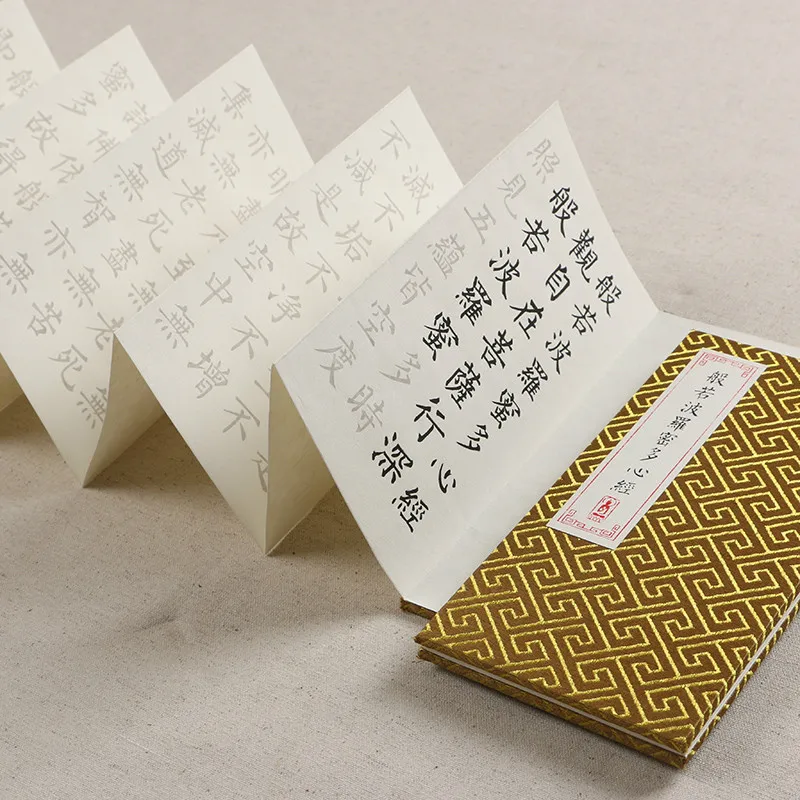 般若波羅密多心經
般若波羅蜜多心經
觀自在菩薩行深
般若波羅蜜多時
照見五蘊皆空度
滅不垢不淨不增
不減是故空中無
無老死
亦無老死盡無苦
集滅道無智亦無